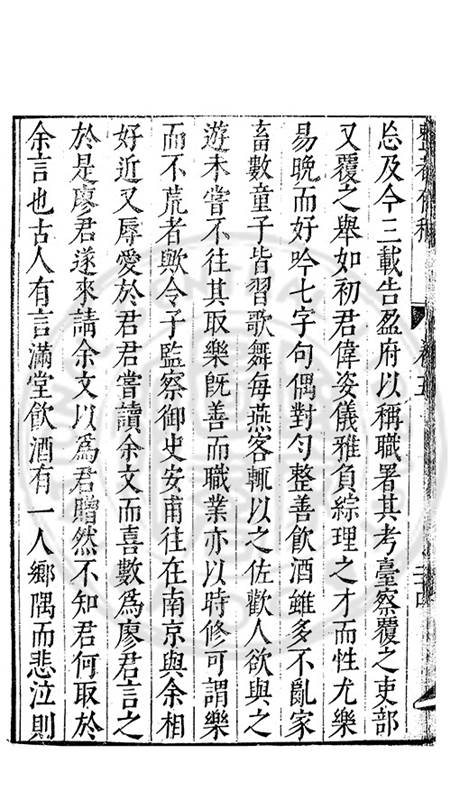 卷五
怠及今三載告盈府以稱職署其考臺察覆之吏部
又覆之舉如初君偉姿儀雅負綜理之才而性尤樂
易晩而好吟七字句偶對勻整善飲酒雖多不亂家
畜數童子皆習歌舞每燕客輒以之佐歡人欲與之
遊未嘗不往其取樂旣善而職業亦以時修可謂樂
而不荒者歟令子監察御史安甫往在南京與余相
好近又辱愛於君君嘗讀余文而喜數爲廖君言之
於是廖君遂來請余文以爲君贈然不知君何取於
余言也古人有言滿堂飲酒有一人鄉隅而悲泣則